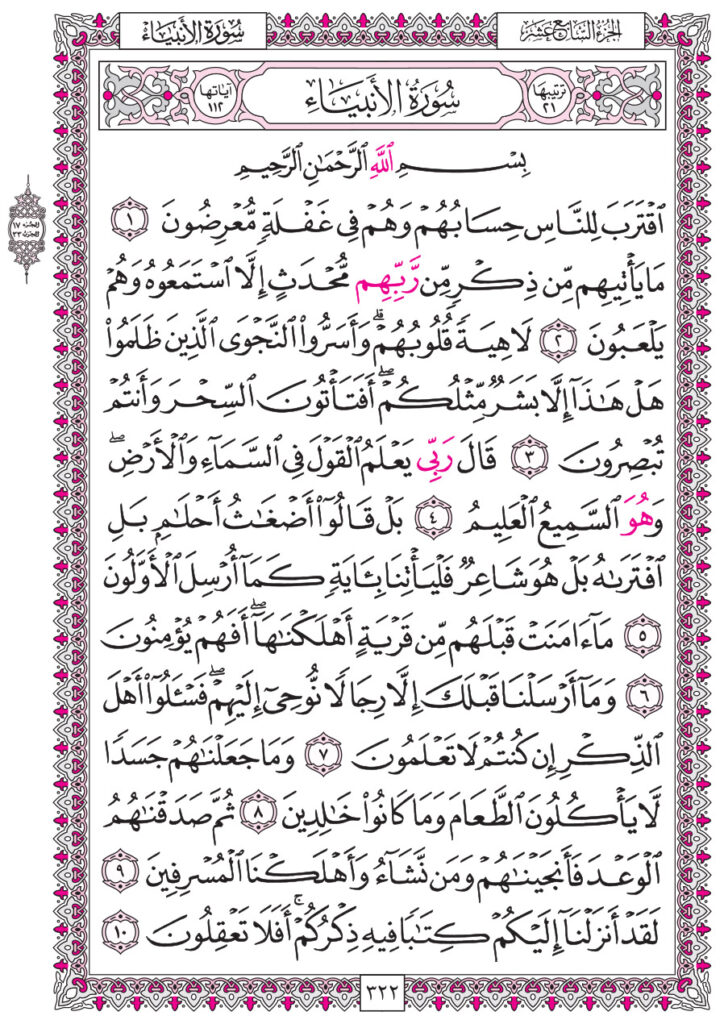 الجزء السابع عشر
سورة الأنبياء
ترتيبها ٢١
سُورَةُ الأَنبِيَاءِ
آياتها ١١٢
بِسْمِ اللَّهِ الرَّحْمَٰنِ الرَّحِيمِ
ٱقْتَرَبَ لِلنَّاسِ حِسَابُهُمْ وَهُمْ فِى غَفْلَةٍ مُّعْرِضُونَ ١
مَا يَأْتِيهِم مِّن ذِكْرٍ مِّن رَّبِّهِم مُّحْدَثٍ إِلَّا ٱسْتَمَعُوهُ وَهُمْ
يَلْعَبُونَ ٢ لَاهِيَةً قُلُوبُهُمْ ۗ وَأَسَرُّوا۟ ٱلنَّجْوَى ٱلَّذِينَ ظَلَمُوا۟
هَلْ هَٰذَآ إِلَّا بَشَرٌ مِّثْلُكُمْ ۖ أَفَتَأْتُونَ ٱلسِّحْرَ وَأَنتُمْ
تُبْصِرُونَ ٣ قَالَ رَبِّى يَعْلَمُ ٱلْقَوْلَ فِى ٱلسَّمَآءِ وَٱلْأَرْضِ ۖ
وَهُوَ ٱلسَّمِيعُ ٱلْعَلِيمُ ٤ بَلْ قَالُوٓا۟ أَضْغَٰثُ أَحْلَٰمٍۭ بَلِ
ٱفْتَرَىٰهُ بَلْ هُوَ شَاعِرٌ فَلْيَأْتِنَا بِـَٔايَةٍ كَمَآ أُرْسِلَ ٱلْأَوَّلُونَ
٥ مَآ ءَامَنَتْ قَبْلَهُم مِّن قَرْيَةٍ أَهْلَكْنَٰهَآ ۖ أَفَهُمْ يُؤْمِنُونَ
٦ وَمَآ أَرْسَلْنَا قَبْلَكَ إِلَّا رِجَالًا نُّوحِىٓ إِلَيْهِمْ ۖ فَسْـَٔلُوٓا۟ أَهْلَ
ٱلذِّكْرِ إِن كُنتُمْ لَا تَعْلَمُونَ ٧ وَمَا جَعَلْنَٰهُمْ جَسَدًا
لَّا يَأْكُلُونَ ٱلطَّعَامَ وَمَا كَانُوا۟ خَٰلِدِينَ ٨ ثُمَّ صَدَقْنَٰهُمُ
ٱلْوَعْدَ فَأَنجَيْنَٰهُمْ وَمَن نَّشَآءُ وَأَهْلَكْنَا ٱلْمُسْرِفِينَ ٩
لَقَدْ أَنزَلْنَآ إِلَيْكُمْ كِتَٰبًا فِيهِ ذِكْرُكُمْ ۖ أَفَلَا تَعْقِلُونَ ١٠
الجزء ١٧
الحزب ٣٣
٣٢٢